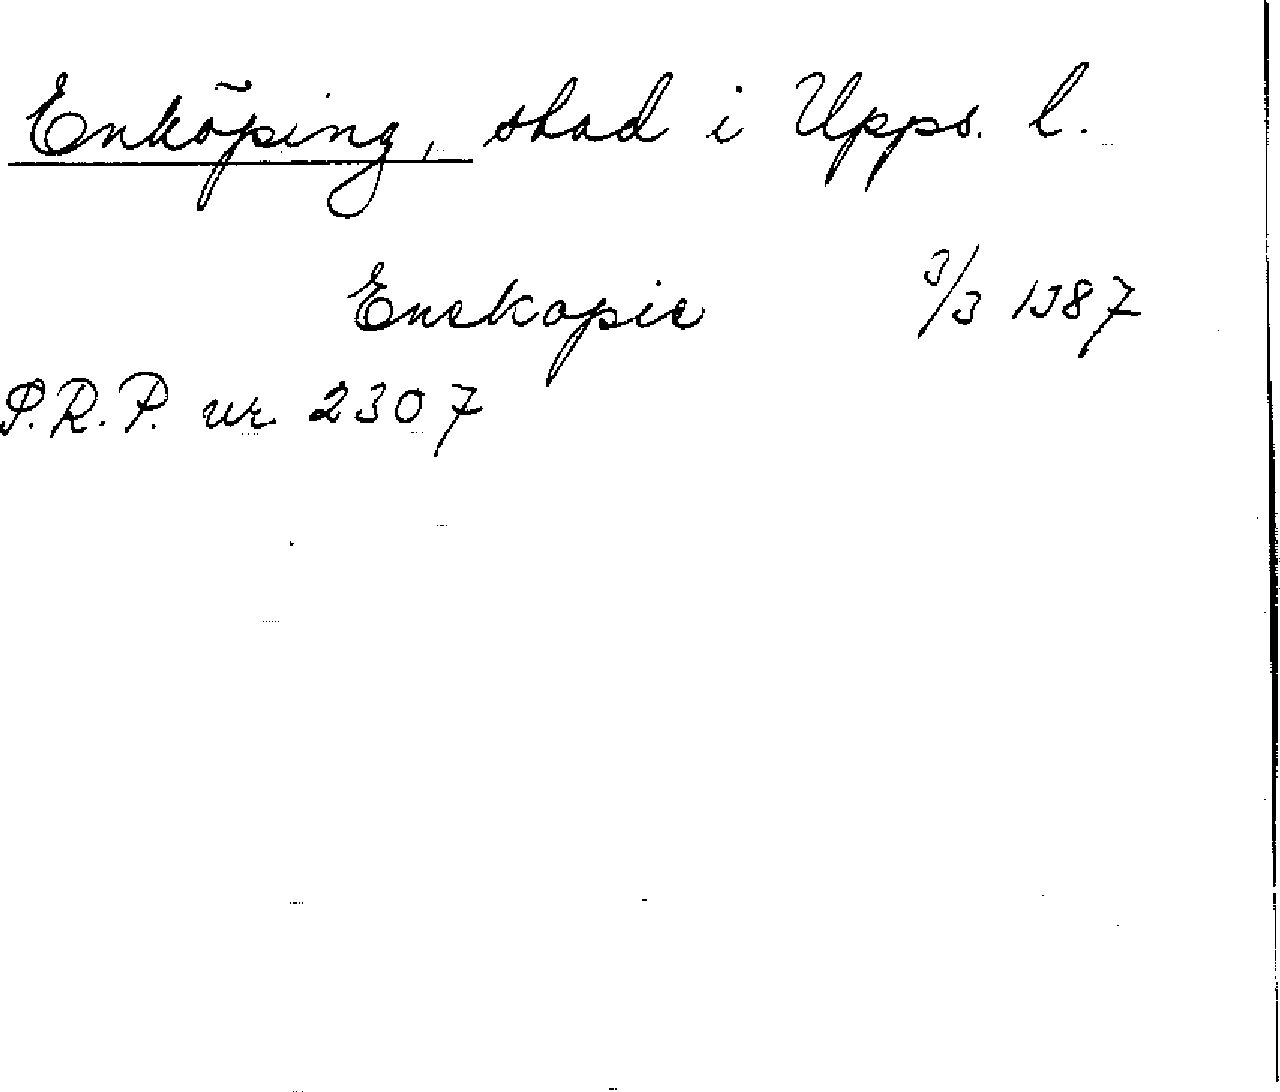 Enköping, stad i Upps. l.
Enekopie 3/3 1387
S.R.P. nr 2307